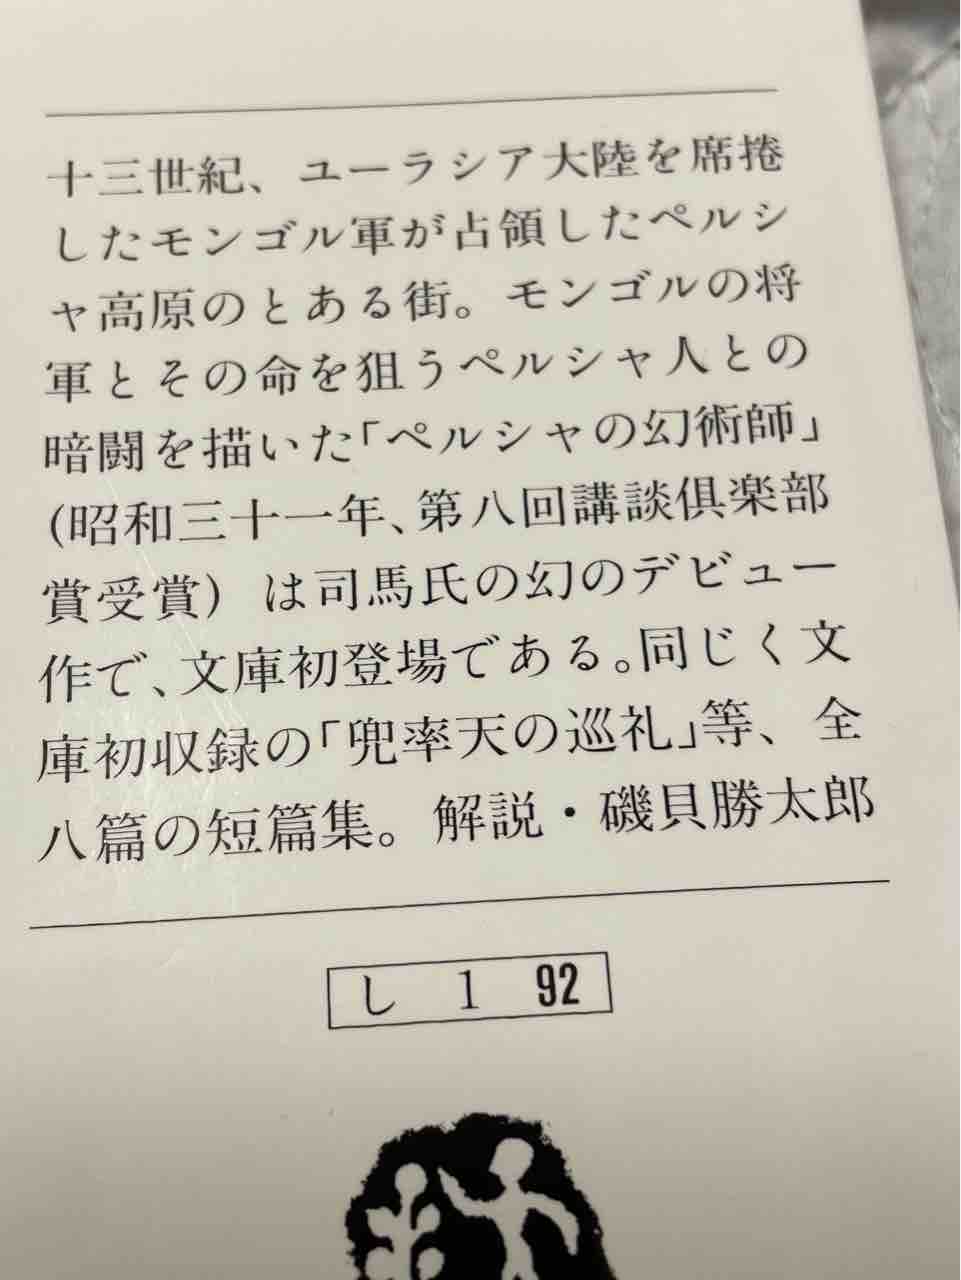 十三世紀、ユーラシア大陸を席捲
したモンゴル軍が占領したペルシ
ャ高原のとある街。モンゴルの将
軍とその命を狙うペルシャ人との
暗闘を描いた「ペルシャの幻術師」
(昭和三十一年、第八回講談倶楽部
賞受賞) は司馬氏の幻のデビュー
作で、文庫初登場である。同じく文
庫初収録の「兜率天の巡礼」等、全
八篇の短篇集。解説・磯貝勝太郎
し 1 92